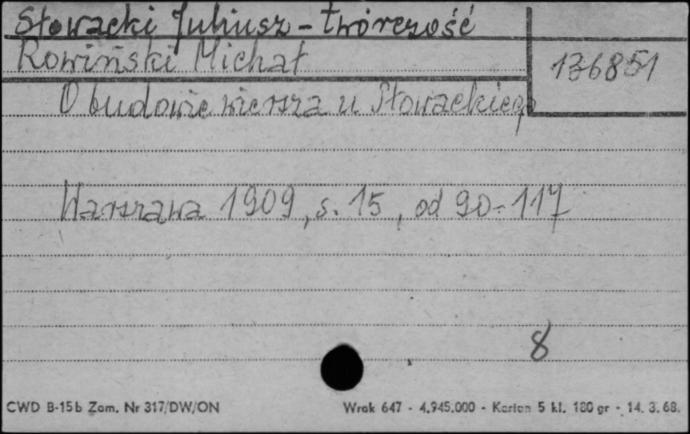 Słowacki Juliusz - twórczość
Rowiński Michał
136851
O budowie wiersza u Słowackiego
Warszawa 1909, s. 15, od 90-117
8
CWD B-15b Zam. Nr 317/DW/ON
Wrok 647 - 4.945.000 - Karton 5 kl. 180 gr - 14. 3. 68.